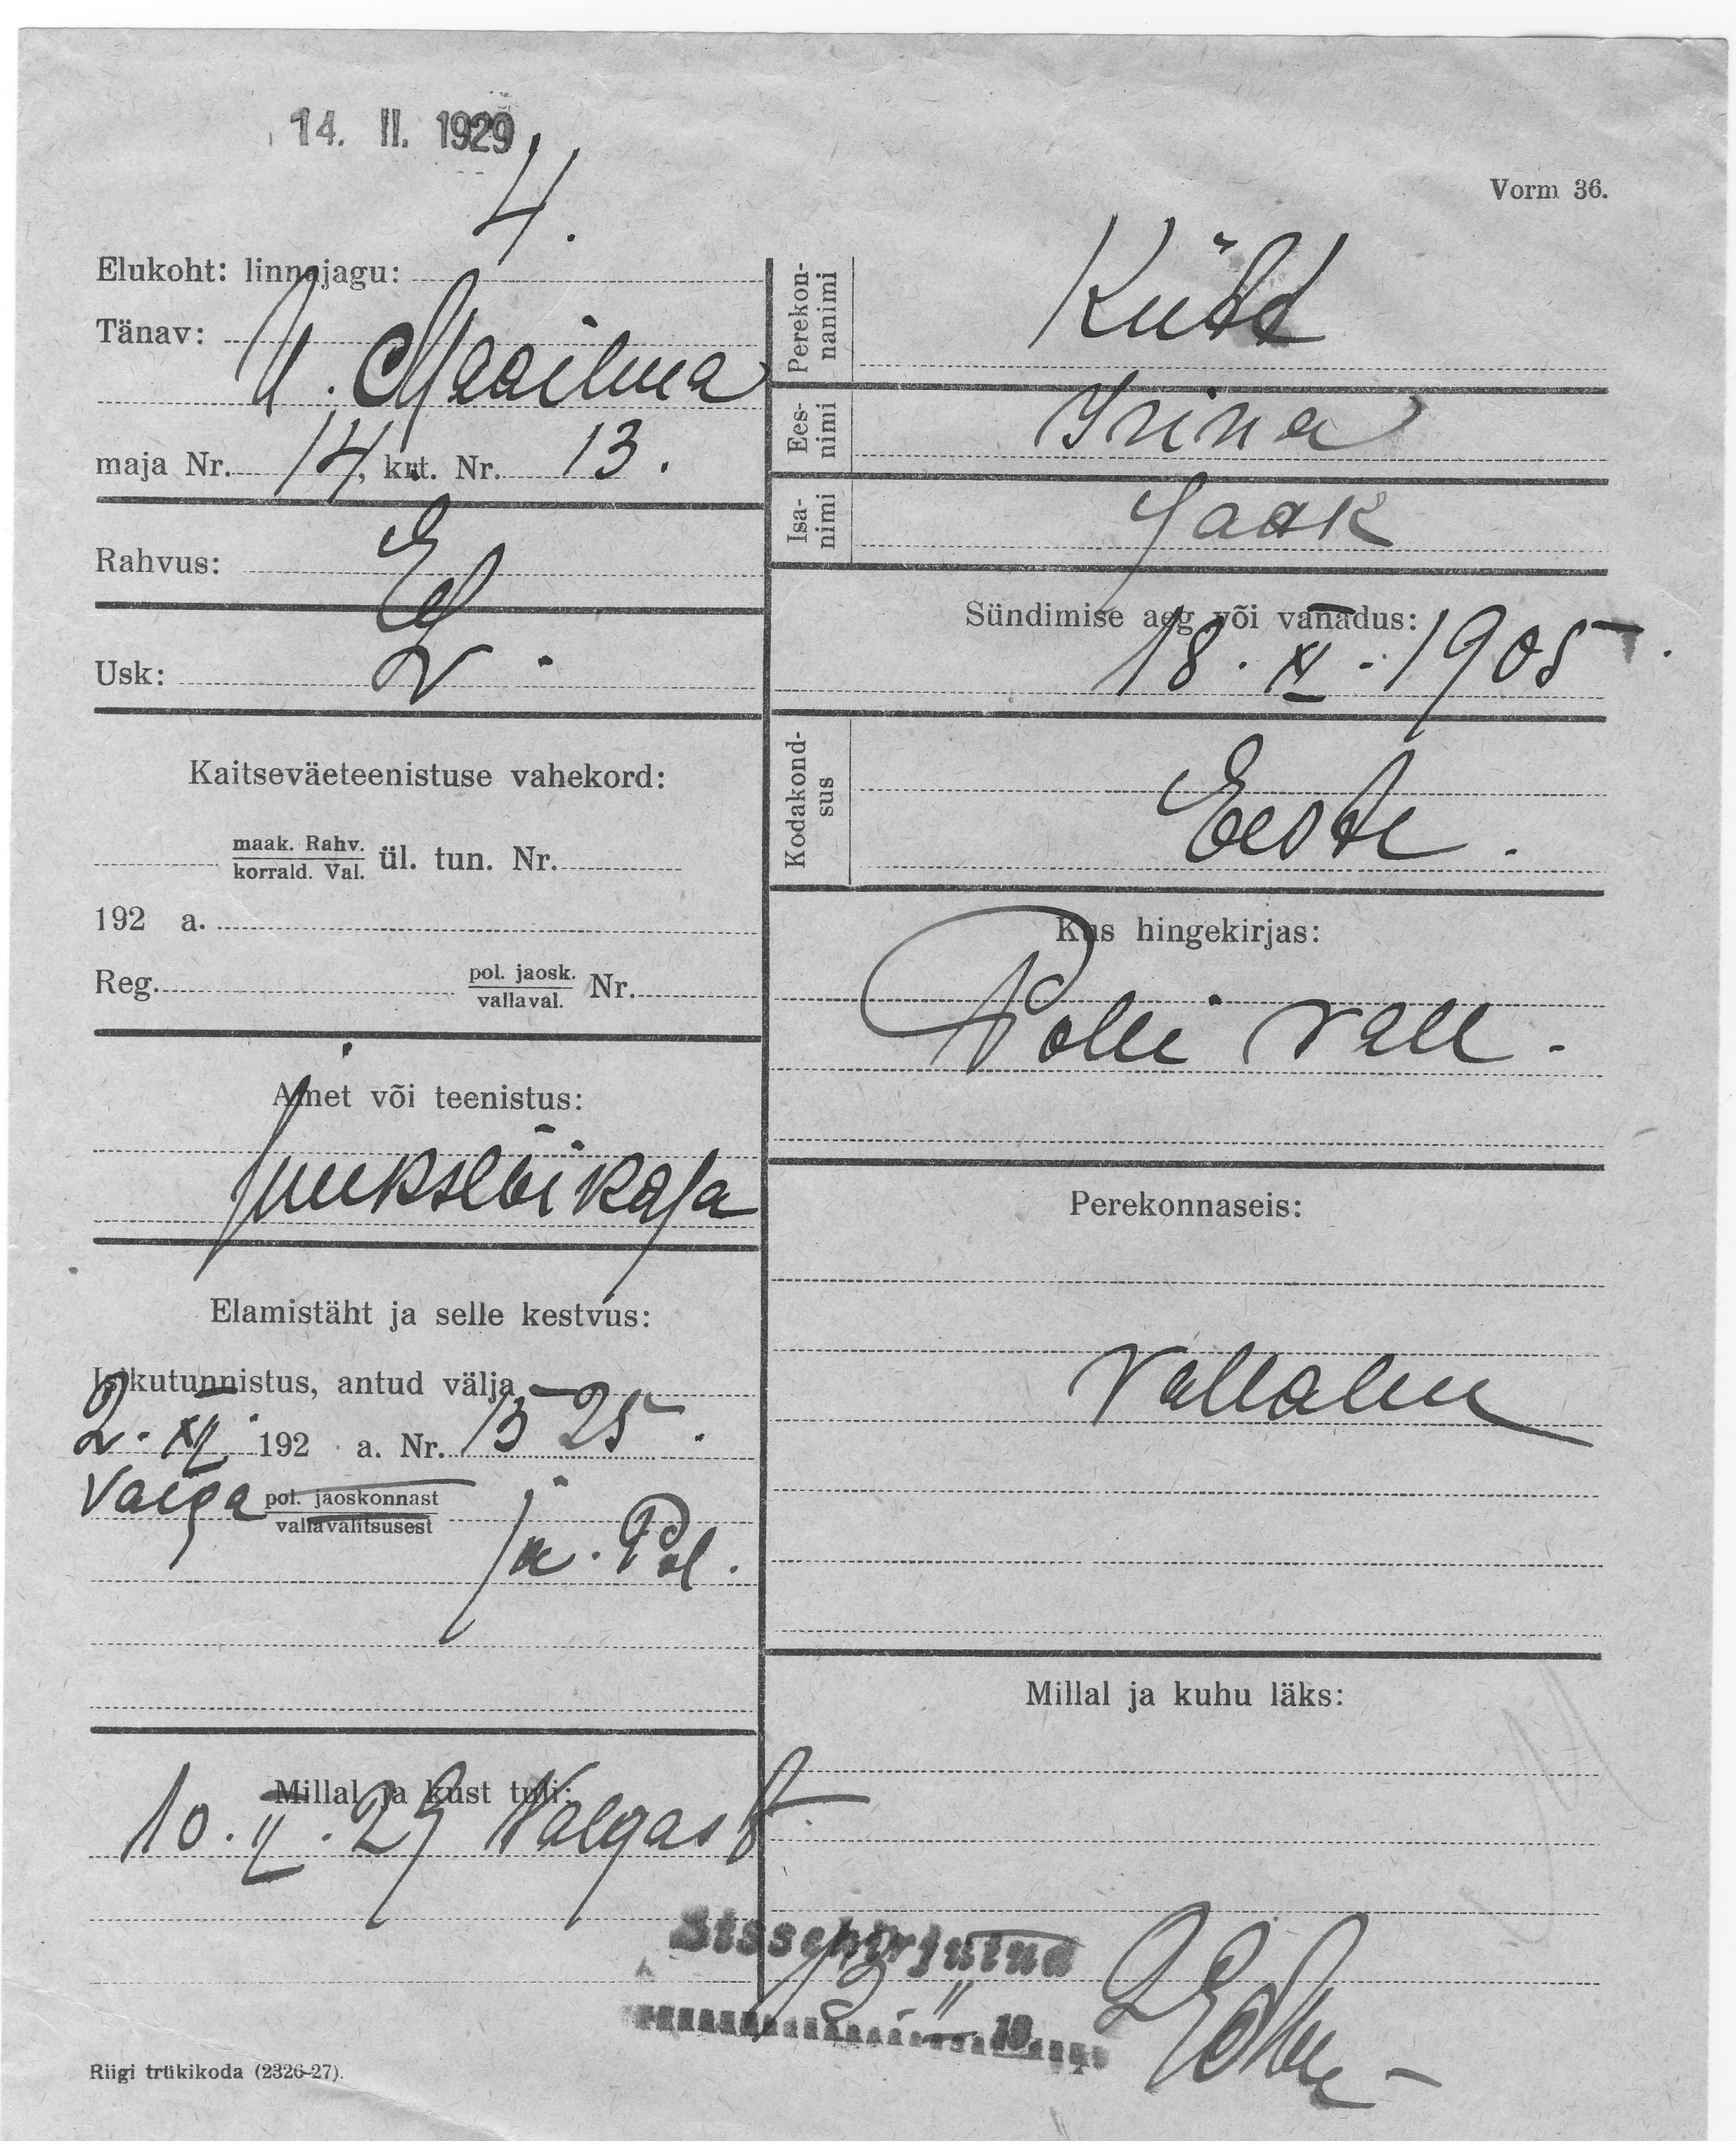 14. II. 1929
4.
Vorm 36.
Elukoht: linnajagu:
Tänav: U. Maailma
maja Nr. 14, krt. Nr. 13.
Rahvus: E
Usk: L.
Kaitseväeteenistuse vahekord:
maak. Rahv.
korrald. Val. ül. tun. Nr.
192 a.
Reg. pol. jaosk.
vallaval. Nr.
Amet või teenistus:
juukselõikaja
Elamistäht ja selle kestvus:
Isikutunnistus, antud välja
2. XII 192 a. Nr. 1525.
Valga pol. jaoskonnast
vallavalitsusest
jk. Pol.
Millal ja kust tuli:
10. II. 29 Valgast
Perekonnanimi
Kütt
Eesnimi
Irina
Isanimi
Jaak
Sündimise aeg või vanadus:
18. XI. 1905.
Kodakondsus
Eesti.
Kus hingekirjas:
Polli vall.
Perekonnaseis:
Vallaline
Millal ja kuhu läks:
Sissekirjutud
13 II 19
Riigi trükikoda (2326-27).